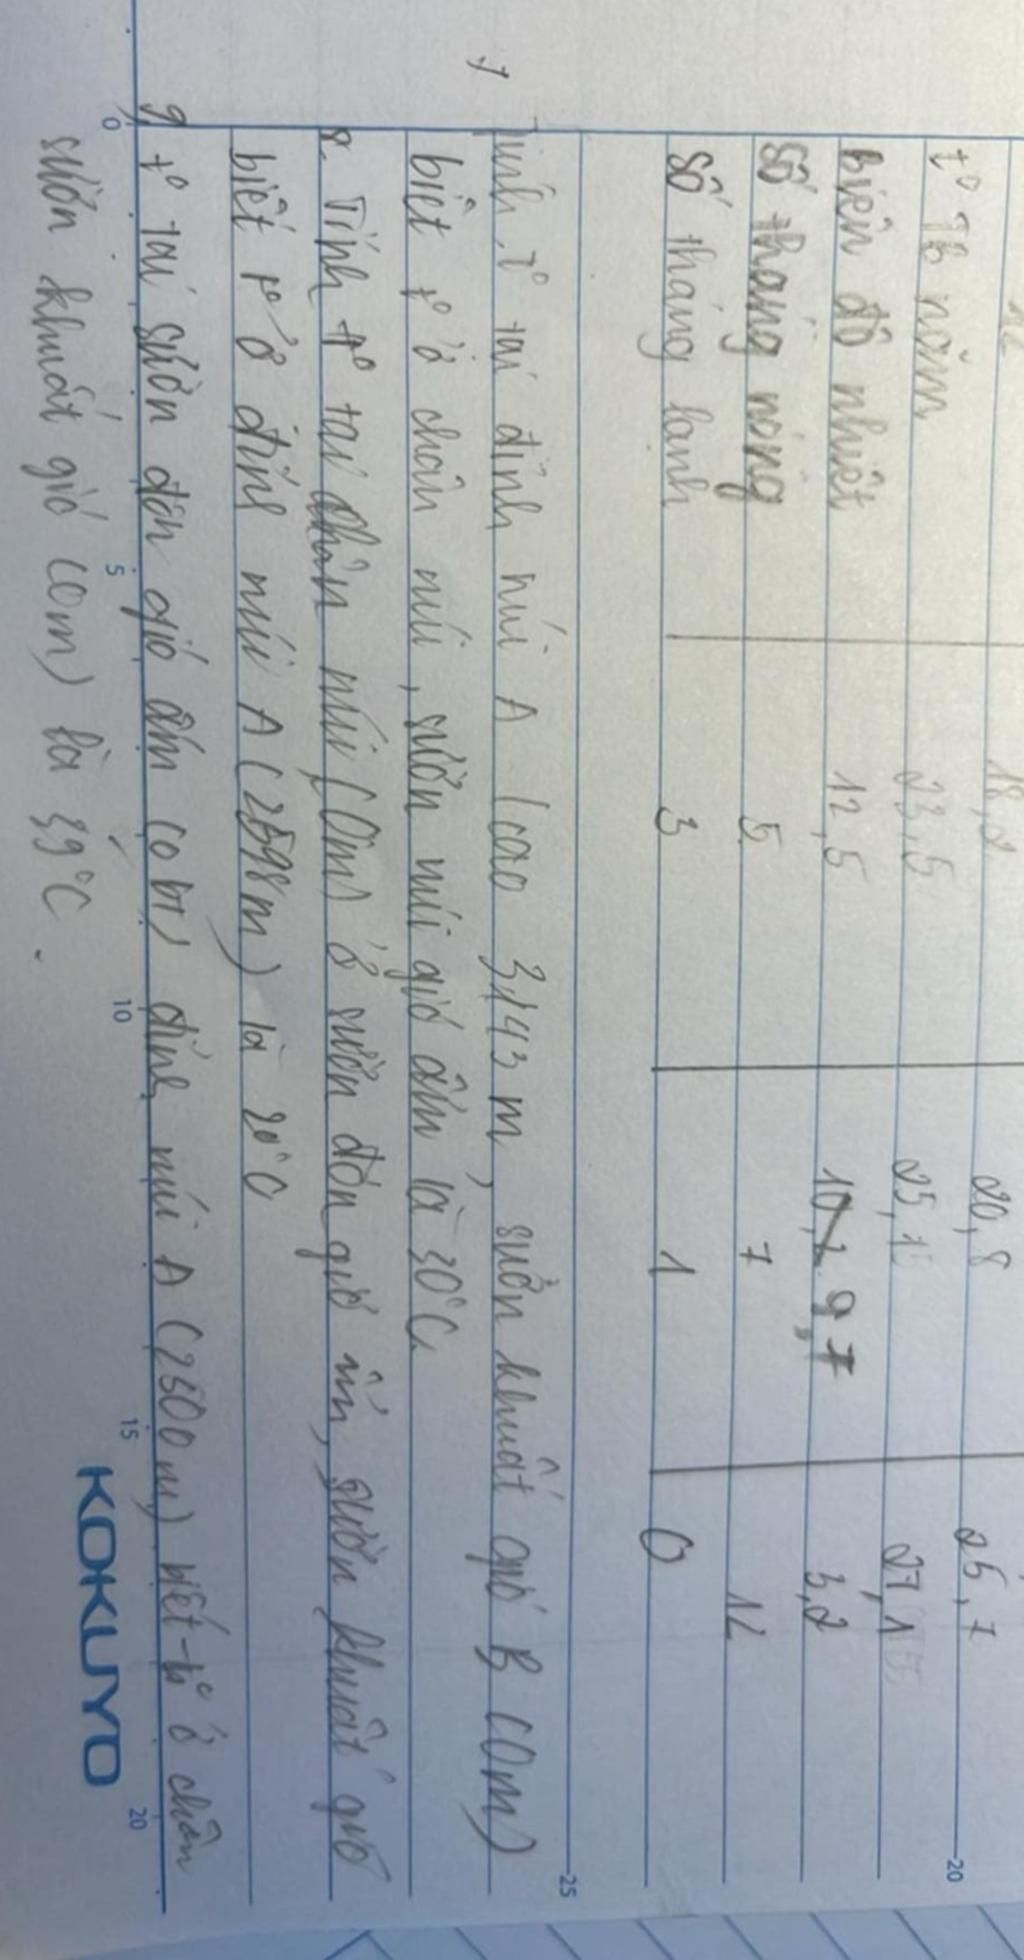 18,2 20,8 25,7
t° TB năm 23,5 25,1 27,1
biên độ nhiệt 12,5 9,7 3,2
Số tháng nóng 5 7 12
Số tháng lạnh 3 1 0
7 Tính t° tại đỉnh núi A (cao 3143 m, sườn khuất gió B (0m)
biết t° ở chân núi, sườn núi gió ẩm là 30°C.
8. Tính t° tại chân núi (0m) ở sườn đón gió ẩm, sườn khuất gió
biết t° ở đỉnh núi A (2598m) là 20°C
9 t° tại sườn đón gió ẩm (0m) đỉnh núi A (2500m) biết t° ở chân
sườn khuất gió (0m) là 39°C.
0 5 10 15 20
20
25
KOKUYO